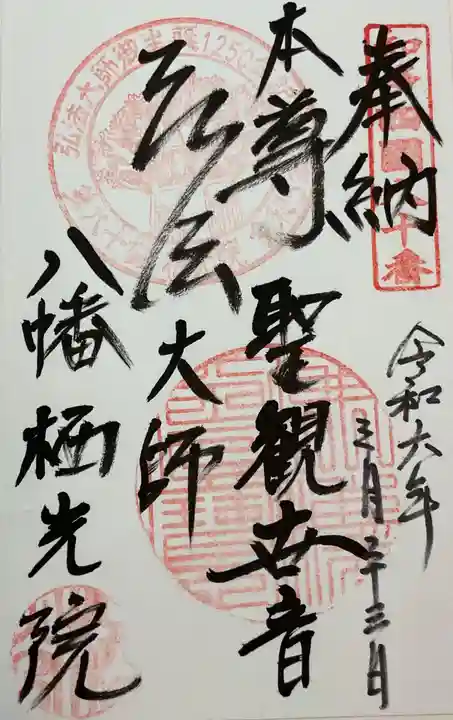 奉納
令和六年
三月二十三日
本尊 聖観世音
弘法大師
八幡栖光院
弘法大師御生誕1250
十番